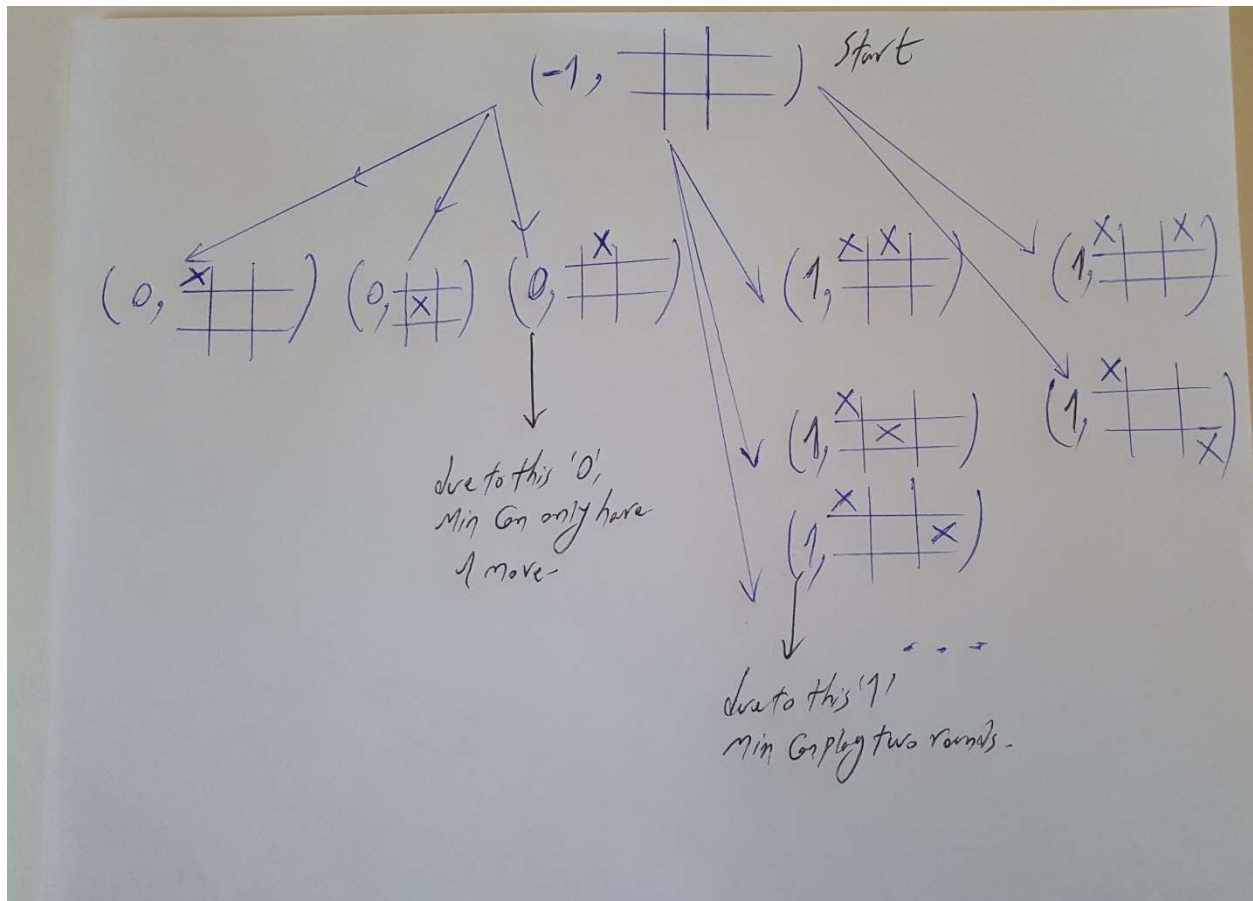 (-1, ) Start
(0, X ) (0, X ) (0, X ) (1, X X ) (1, X X )
(1, X X ) (1, X X )
(1, X X )
due to this '0',
Min Can only have
1 move-
...
due to this '1'
Min Can play two rounds.